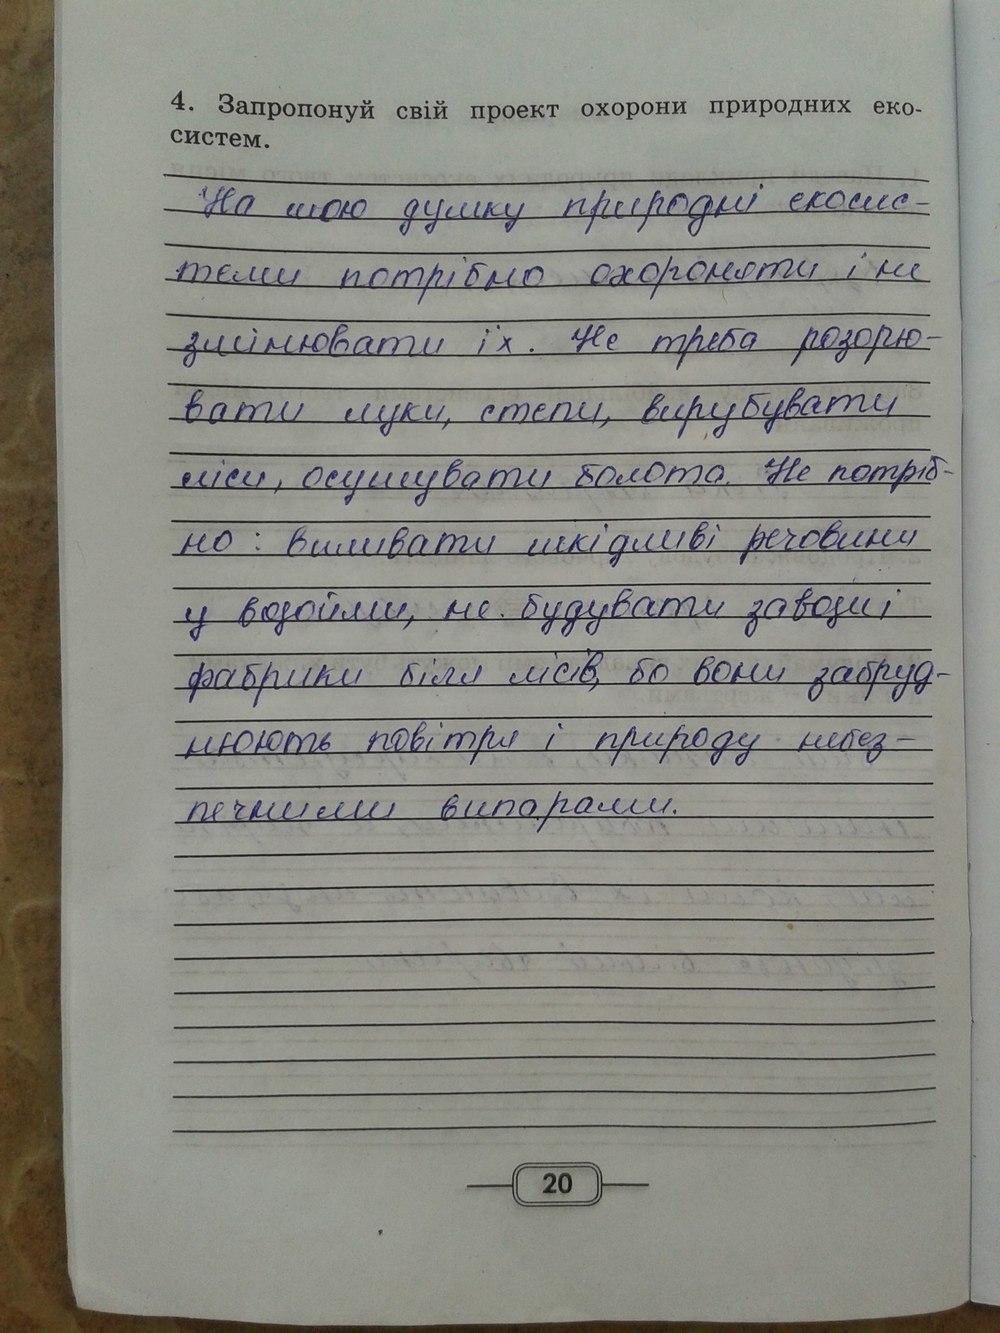 4. Запропонуй свій проект охорони природних еко-
систем.
На мою думку природні екосис-
теми потрібно охороняти і не
змінювати їх. Не треба розорю-
вати луки, степи, вирубувати
ліси, осушувати болота. Не потріб-
но: виливати шкідливі речовини
у водойми, не будувати заводи і
фабрики біля лісів, бо вони забруд-
нюють повітря і природу небез-
печними випарами.
20